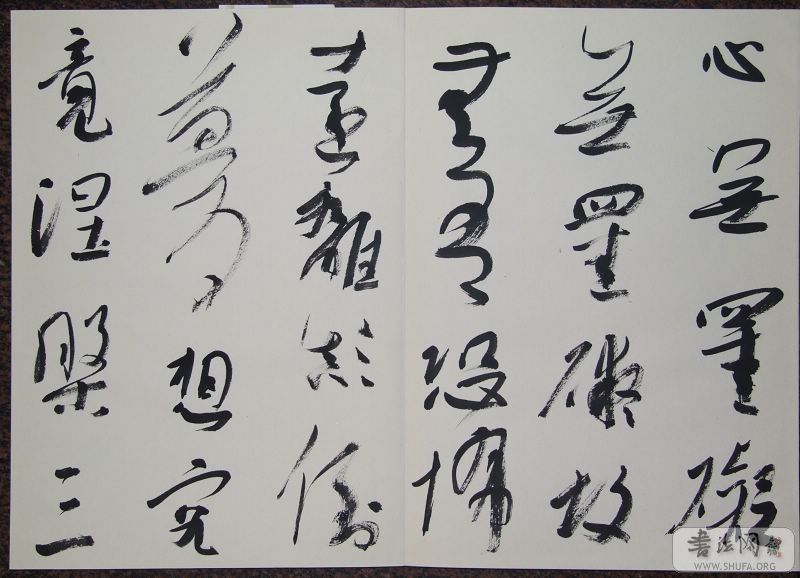 心無罣礙
無罣礙故
無有恐怖
遠離顛倒
夢想究
竟涅槃三
書法网
WWW.SHUFA.ORG